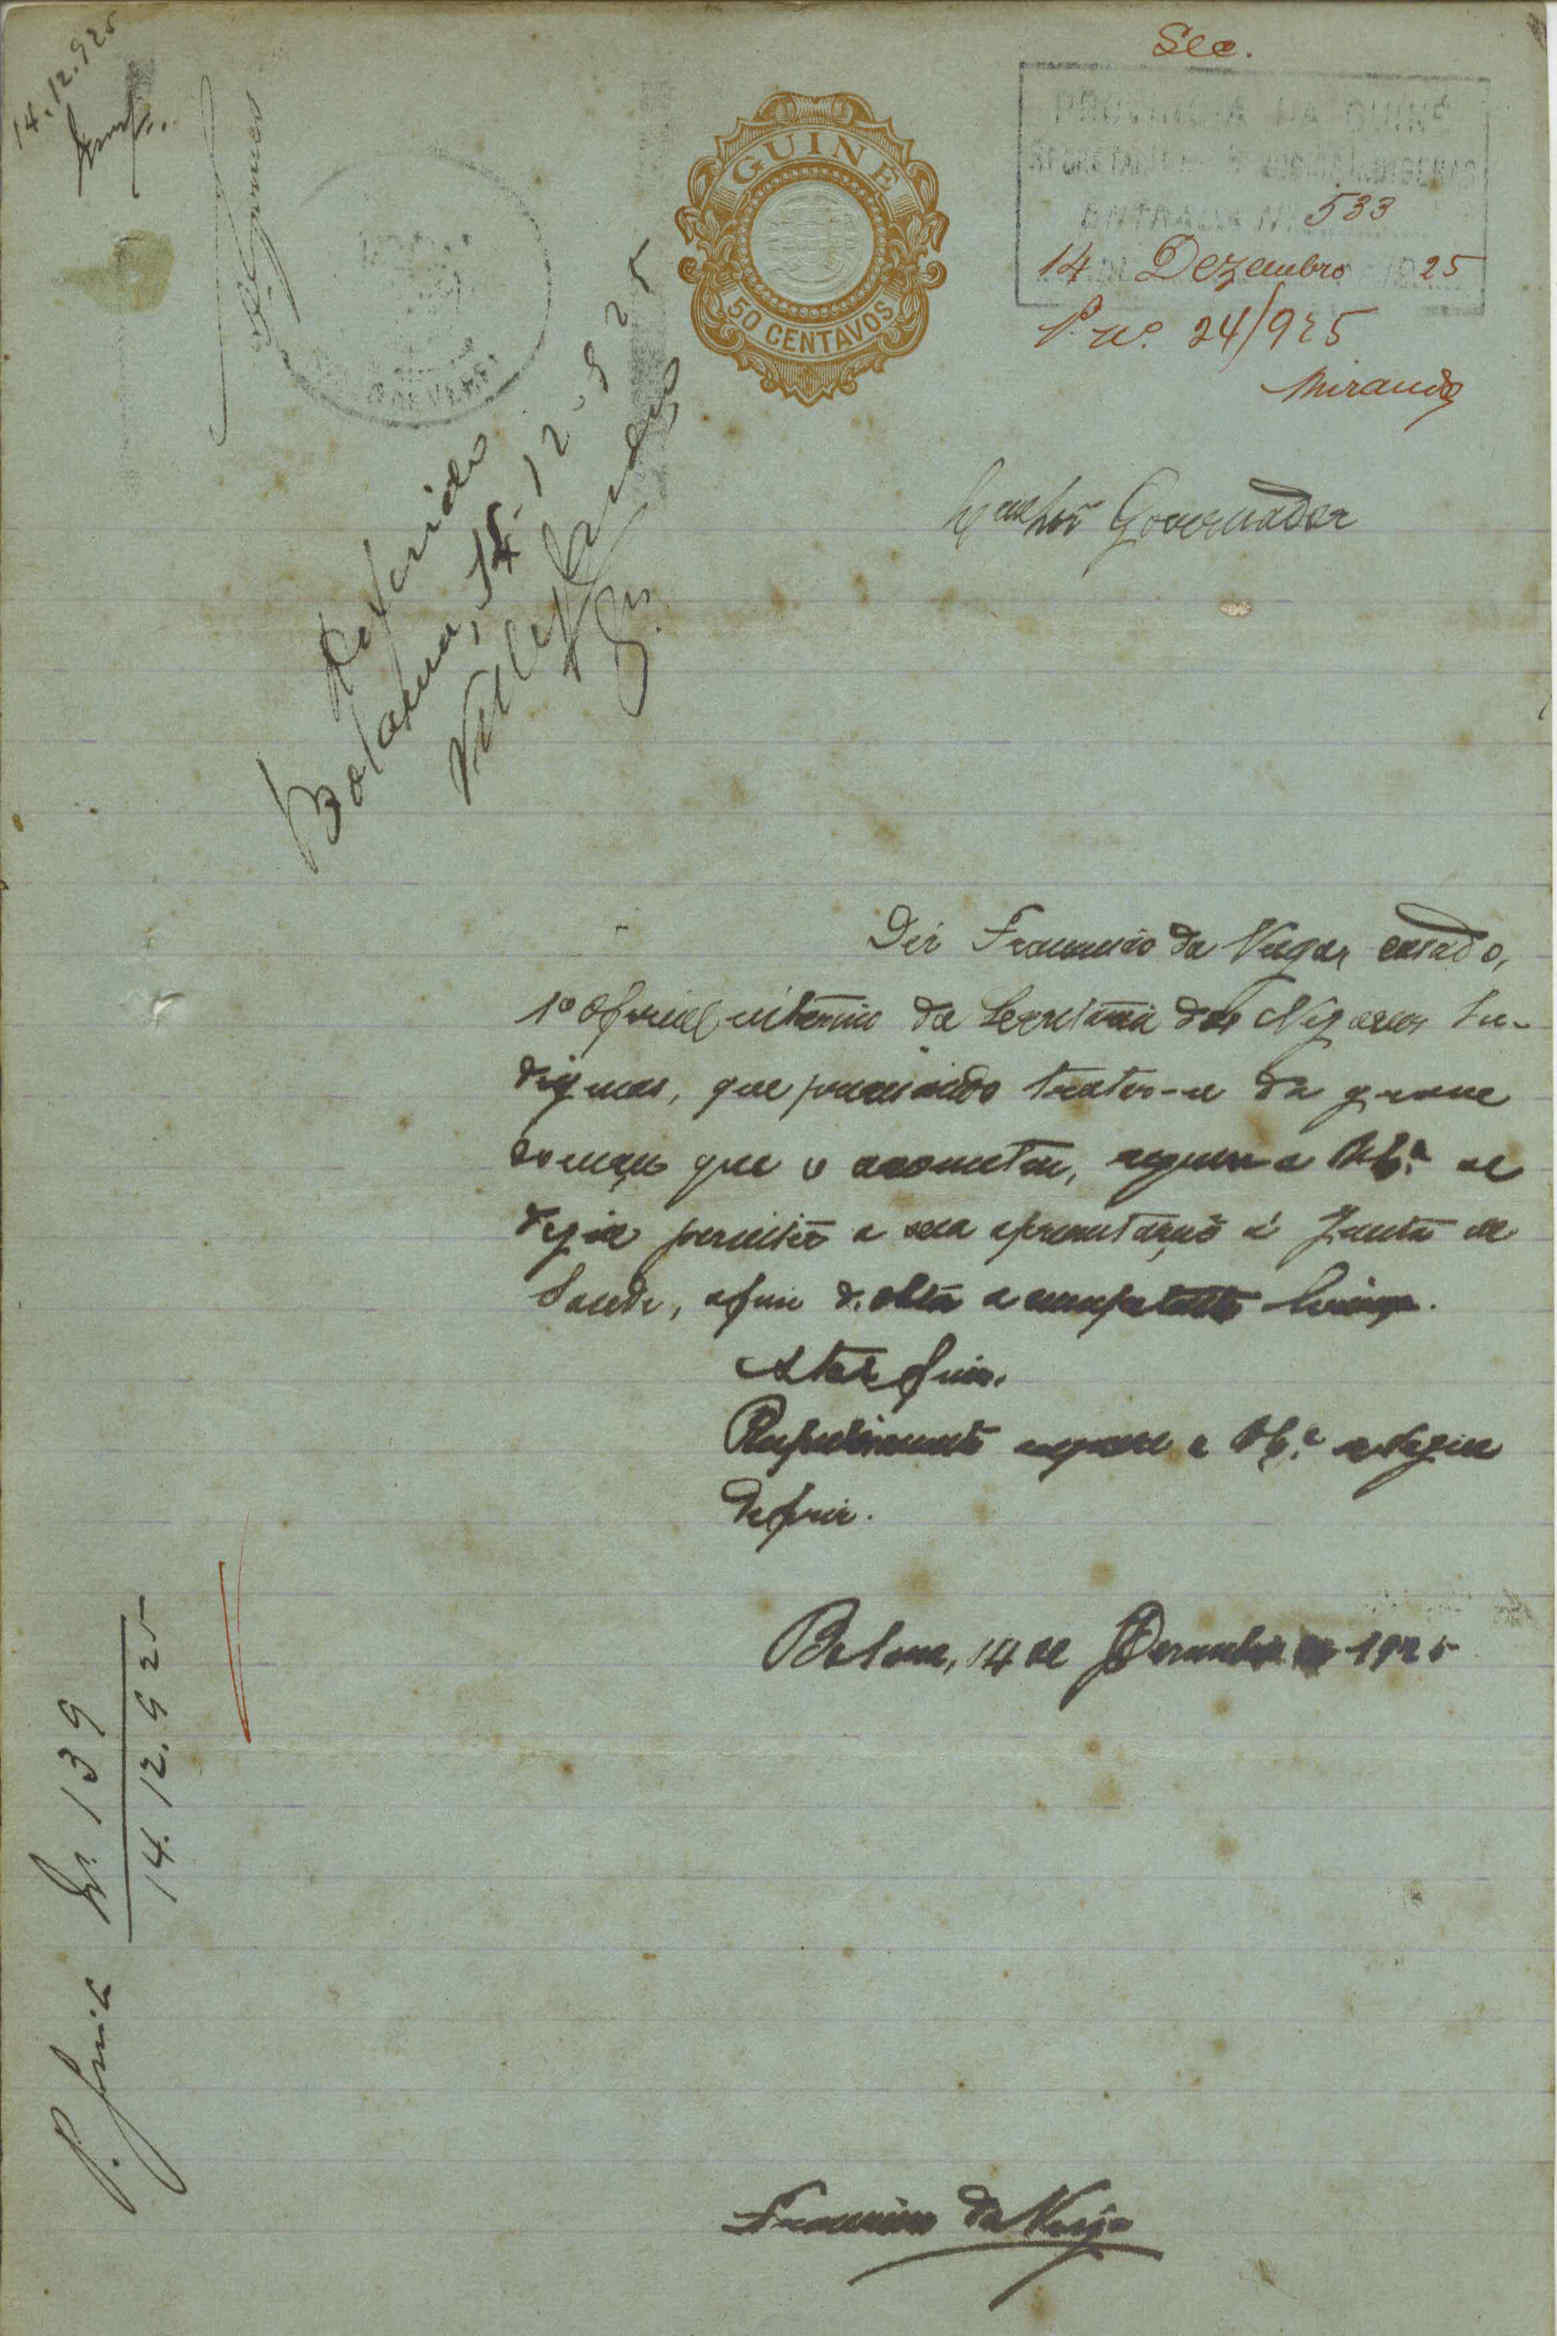 14.12.925
Sec.
GUINÉ
50 CENTAVOS
PROVINCIA DA GUINÉ
ENTRADA Nº 533
14 Dezembro 1925
P. nº. 24/925
Miranda
Gomes
Deferido
Bolama, 14-12-925
Senhor Governador
Diz Francisco da Veiga, casado,
1º oficial interino da Secretaria dos Negocios In-
digenas, que precisando tratar-se da grave
doença que o acometeu, requer a V. Ex.ª se
digne permitir a sua apresentação á Junta de
Saude, afim de obter a competente licença.
Para este fim.
Respeitosamente a V. Ex.ª se digne
deferir.
Bolama, 14 de Dezembro de 1925
Francisco da Veiga
P. Junta Nº. 139
14.12.925